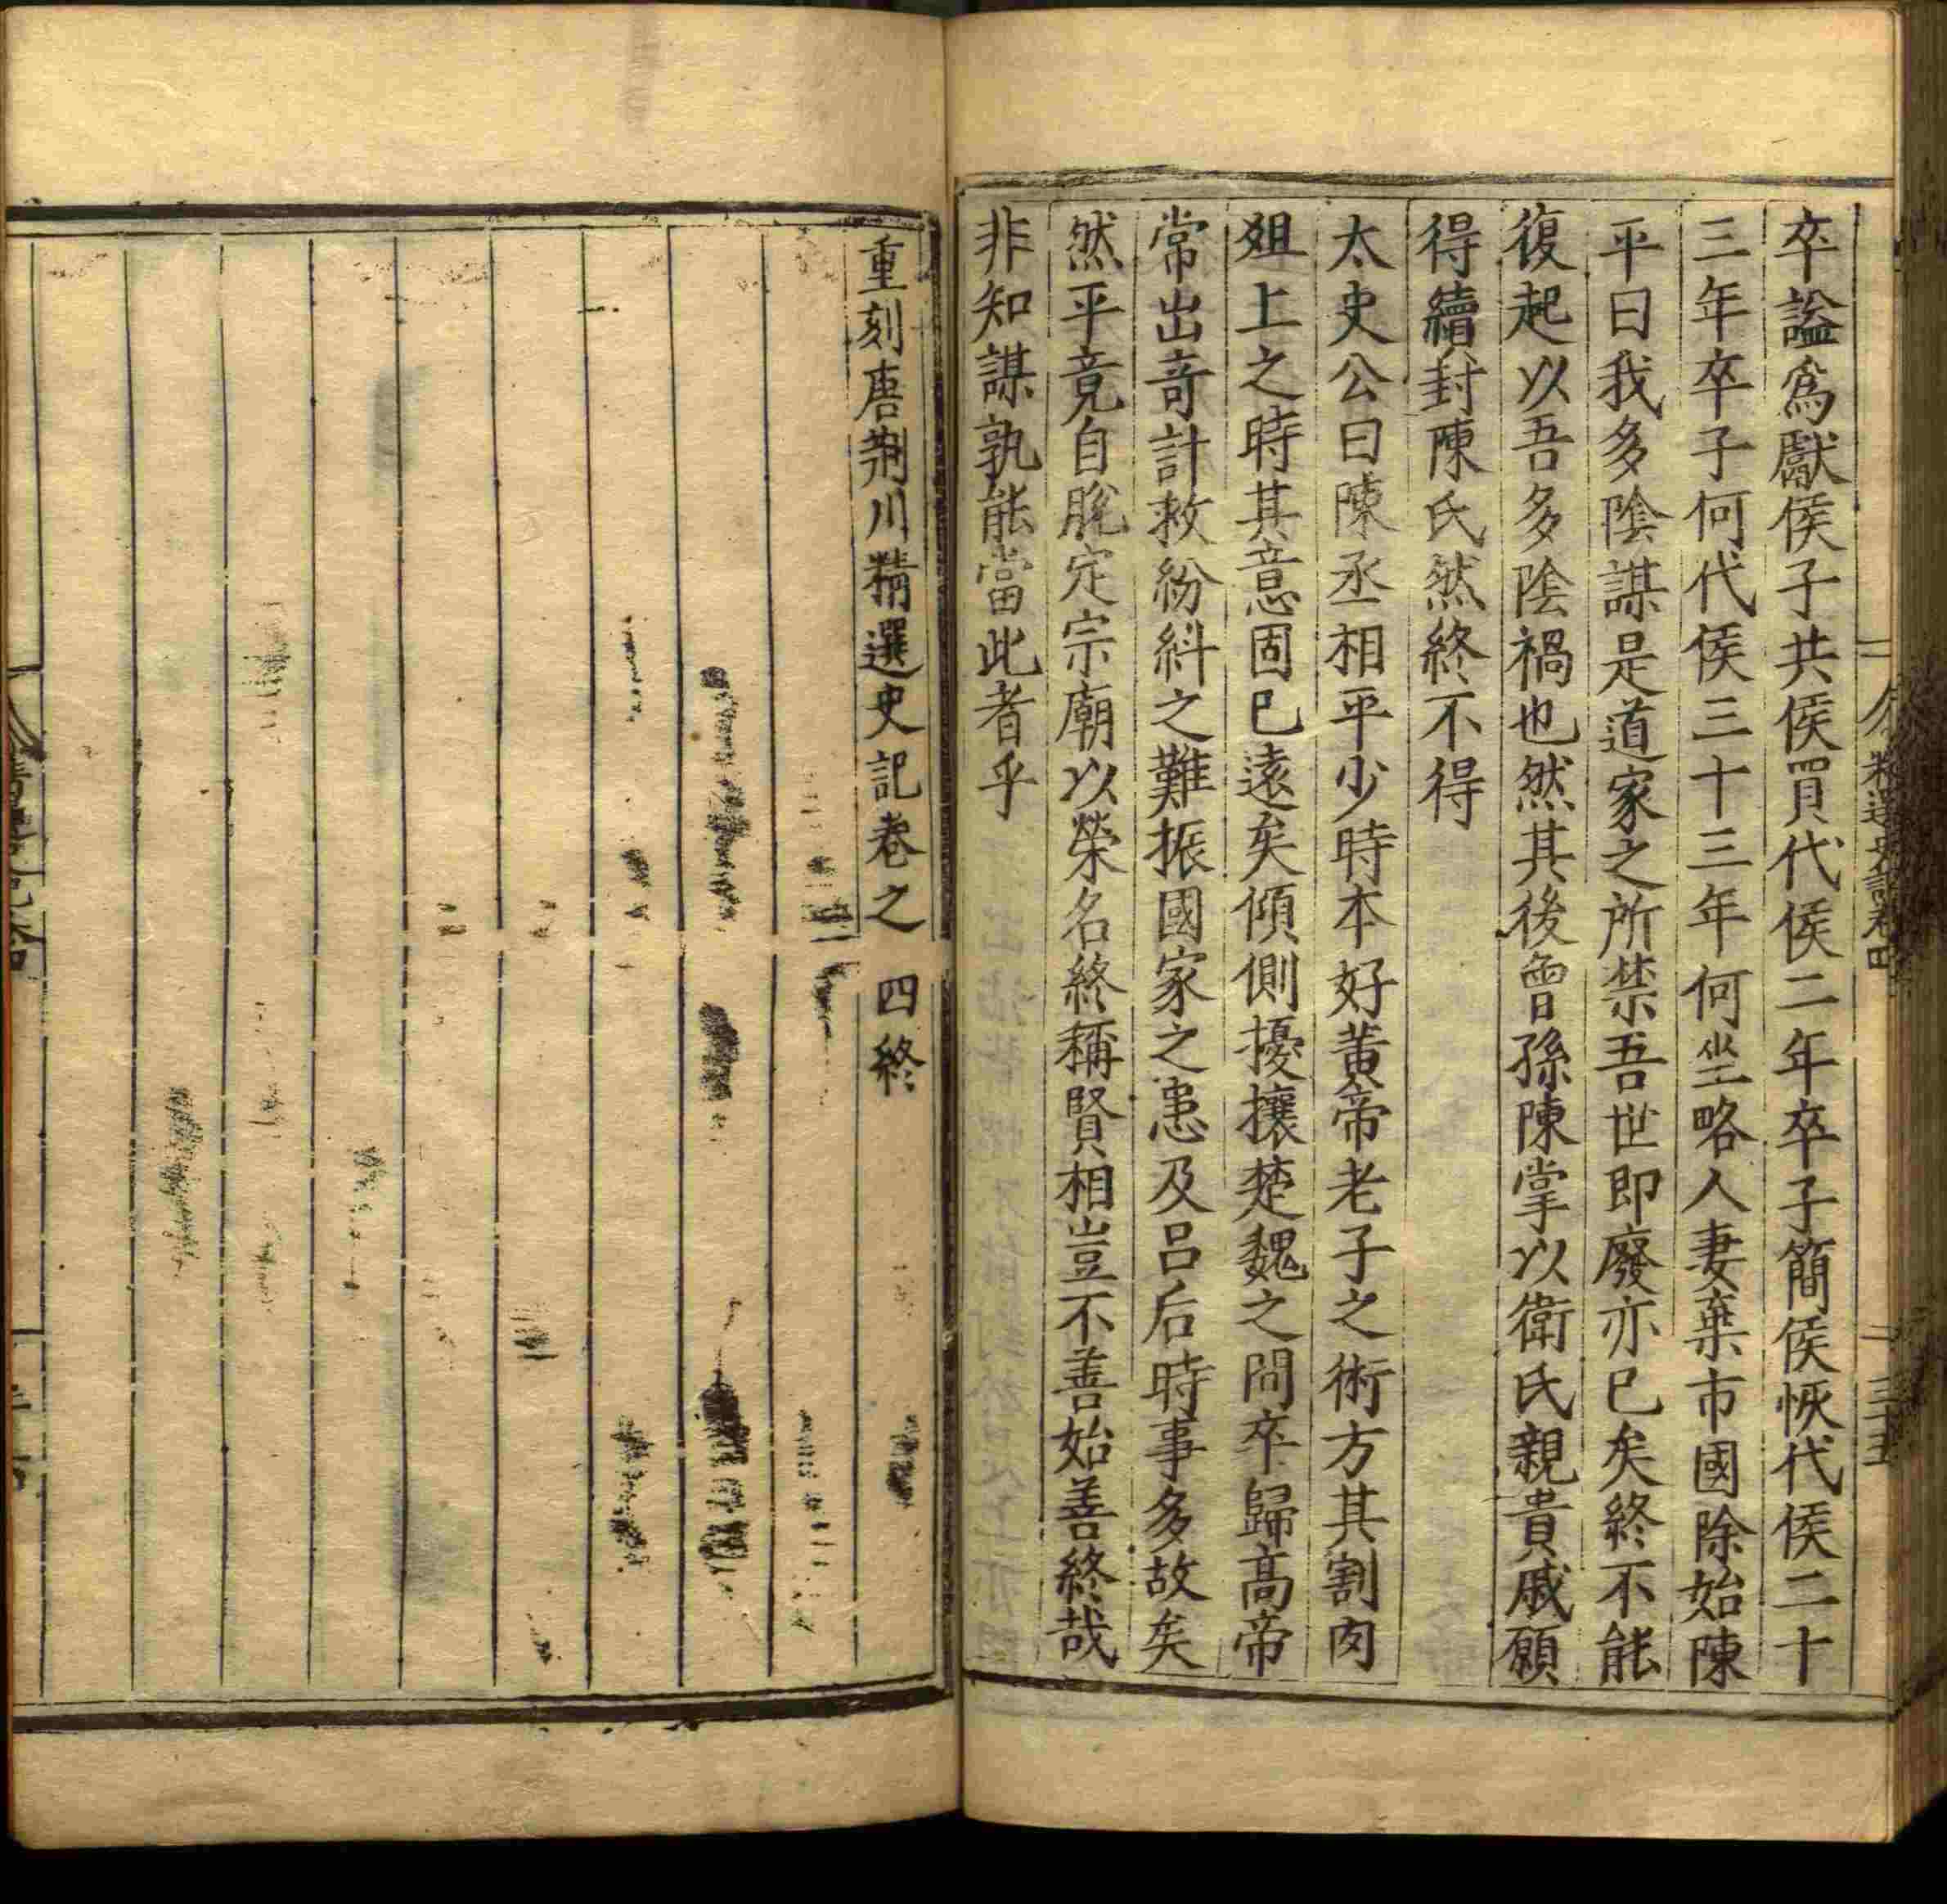 卒謚爲獻侯子共侯買代侯二年卒子簡侯恢代侯二十
三年卒子何代侯三十三年何坐略人妻棄市國除始陳
平曰我多陰謀是道家之所禁吾世即廢亦已矣終不能
復起以吾多陰禍也然其後曾孫陳掌以衛氏親貴戚願
得續封陳氏然終不得
太史公曰陳丞相平少時本好黃帝老子之術方其割肉
爼上之時其意固已遠矣傾側擾攘楚魏之間卒歸高帝
常出奇計救紛糾之難振國家之患及吕后時事多故矣
然平竟自脫定宗廟以榮名終稱賢相豈不善始善終哉
非知謀孰能當此者乎
重刻唐荆川精選史記卷之四終